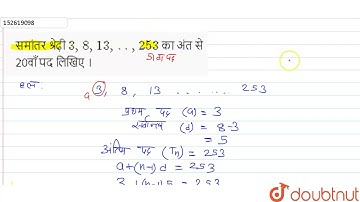 152619098
समांतर श्रेढ़ी 3, 8, 13, . . ., 253 का अंत से
20वाँ पद लिखिए ।
हल
a 3, 8, 13 . . . . . . 253
प्रथम पद (a) = 3
सर्वान्तर (d) = 8-3
= 5
अंतिम पद (Tn) = 253
a+(n-1)d = 253
3+(n-1)5 = 253
doubtnut